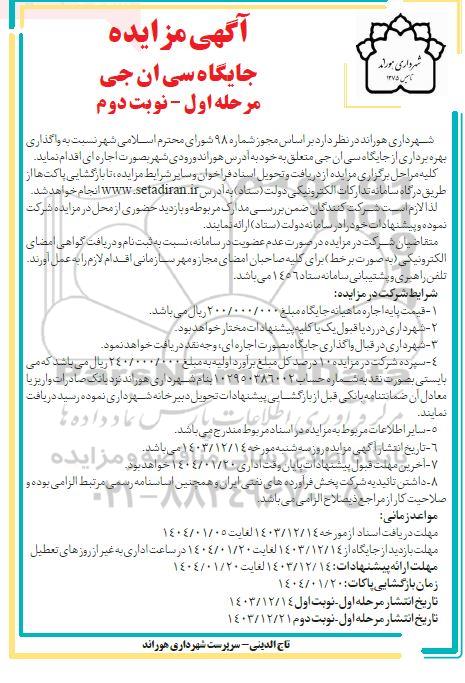 شهرداری هوراند
تاسیس ۱۳۷۵
آگهی مزایده
جایگاه سی ان جی
مرحله اول - نوبت دوم
شهرداری هوراند در نظر دارد بر اساس مجوز شماره ۹۸ شورای محترم اسلامی شهر نسبت به واگذاری
بهره برداری از جایگاه سی ان جی متعلق به خود به آدرس هوراند ورودی شهر بصورت اجاره ای اقدام نماید.
کلیه مراحل برگزاری مزایده از دریافت و تحویل اسناد فراخوان و سایر شرایط مزایده، تا بازگشایی پاکت ها از
طریق درگاه سامانه تدارکات الکترونیکی دولت (ستاد) به آدرس www.setadiran.ir انجام خواهد شد.
لذا لازم است شرکت کنندگان ضمن بررسی مدارک مربوطه و بازدید حضوری از محل در مزایده شرکت
نموده و پیشنهادات خود را در سامانه دولت (ستاد) ارائه نمایند.
متقاضیان شرکت در مزایده در صورت عدم عضویت در سامانه، نسبت به ثبت نام و دریافت گواهی امضای
الکترونیکی (به صورت برخط) برای کلیه صاحبان امضای مجاز و مهر سازمانی اقدام لازم را به عمل آورند.
تلفن راهبری و پشتیبانی سامانه ستاد ۱۴۵۶ می باشد.
شرایط شرکت در مزایده:
۱- قیمت پایه اجاره ماهیانه جایگاه مبلغ ۲۰۰/۰۰۰/۰۰۰ ریال می باشد.
۲- شهرداری در رد یا قبول یک یا کلیه پیشنهادات مختار خواهد بود.
۳- شهرداری در قبال واگذاری جایگاه بصورت اجاره ای، وجه نقد دریافت خواهد نمود.
۴- سپرده شرکت در مزایده ۱۰ درصد کل مبلغ برآورد اولیه به مبلغ ۲۴۰/۰۰۰/۰۰۰ ریال می باشد که می
بایستی بصورت نقد به شماره حساب ۱۰۲۹۵۰۳۸۶۰۰۲ بنام شهرداری هوراند نزد بانک صادرات واریز یا
معادل آن ضمانتنامه بانکی قبل از بازگشایی پیشنهادات تحویل دبیرخانه شهرداری نموده رسید دریافت
نمایند.
۵- سایر اطلاعات مربوط به مزایده در اسناد مربوط مندرج می باشد.
۶- تاریخ انتشار آگهی مزایده روز سه شنبه مورخه ۱۴۰۳/۱۲/۱۴ می باشد.
۷- آخرین مهلت قبول پیشنهادات پایان وقت اداری ۱۴۰۴/۰۱/۲۰ خواهد بود.
۸- داشتن تائیدیه شرکت پخش فرآورده های نفتی ایران و همچنین اساسنامه رسمی مرتبط الزامی بوده و
صلاحیت کار از مراجع ذیصلاح الزامی می باشد.
مواعد زمانی:
مهلت دریافت اسناد از مورخه ۱۴۰۳/۱۲/۱۴ لغایت ۱۴۰۴/۰۱/۰۵
مهلت بازدید از جایگاه از ۱۴۰۳/۱۲/۱۴ لغایت ۱۴۰۴/۰۱/۲۰ در ساعت اداری به غیر از روزهای تعطیل
مهلت ارائه پیشنهادات: ۱۴۰۳/۱۲/۱۴ لغایت ۱۴۰۴/۰۱/۲۰
زمان بازگشایی پاکات: ۱۴۰۴/۰۱/۲۰
تاریخ انتشار مرحله اول - نوبت اول ۱۴۰۳/۱۲/۱۴
تاریخ انتشار مرحله اول - نوبت دوم ۱۴۰۳/۱۲/۲۱
تاج الدینی - سرپرست شهرداری هوراند